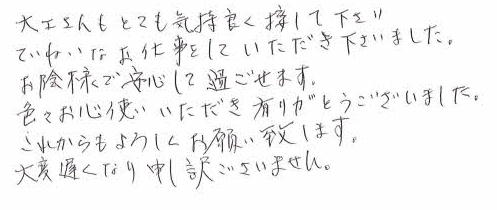 大工さんもとても気持良く接して下さり
ていねいなお仕事をしていただき下さいました。
お陰様で安心して過ごせます。
色々お心使いいただき有りがとうございました。
これからもよろしくお願い致します。
大変遅くなり申し訳ございません。